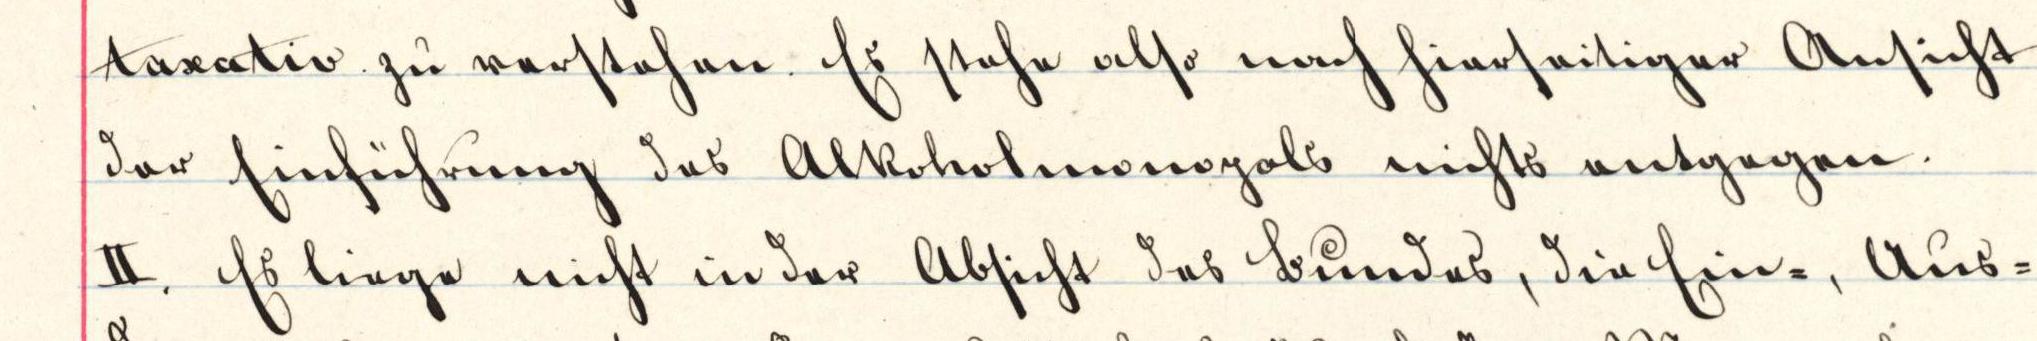 taxativ zu verstehen. Es stehe also nach hierseitiger Ansicht
der Einführung des Alkoholmonopols nichts entgegen.
II. Es liege nicht in der Absicht des Bundes, die Ein=, Aus=